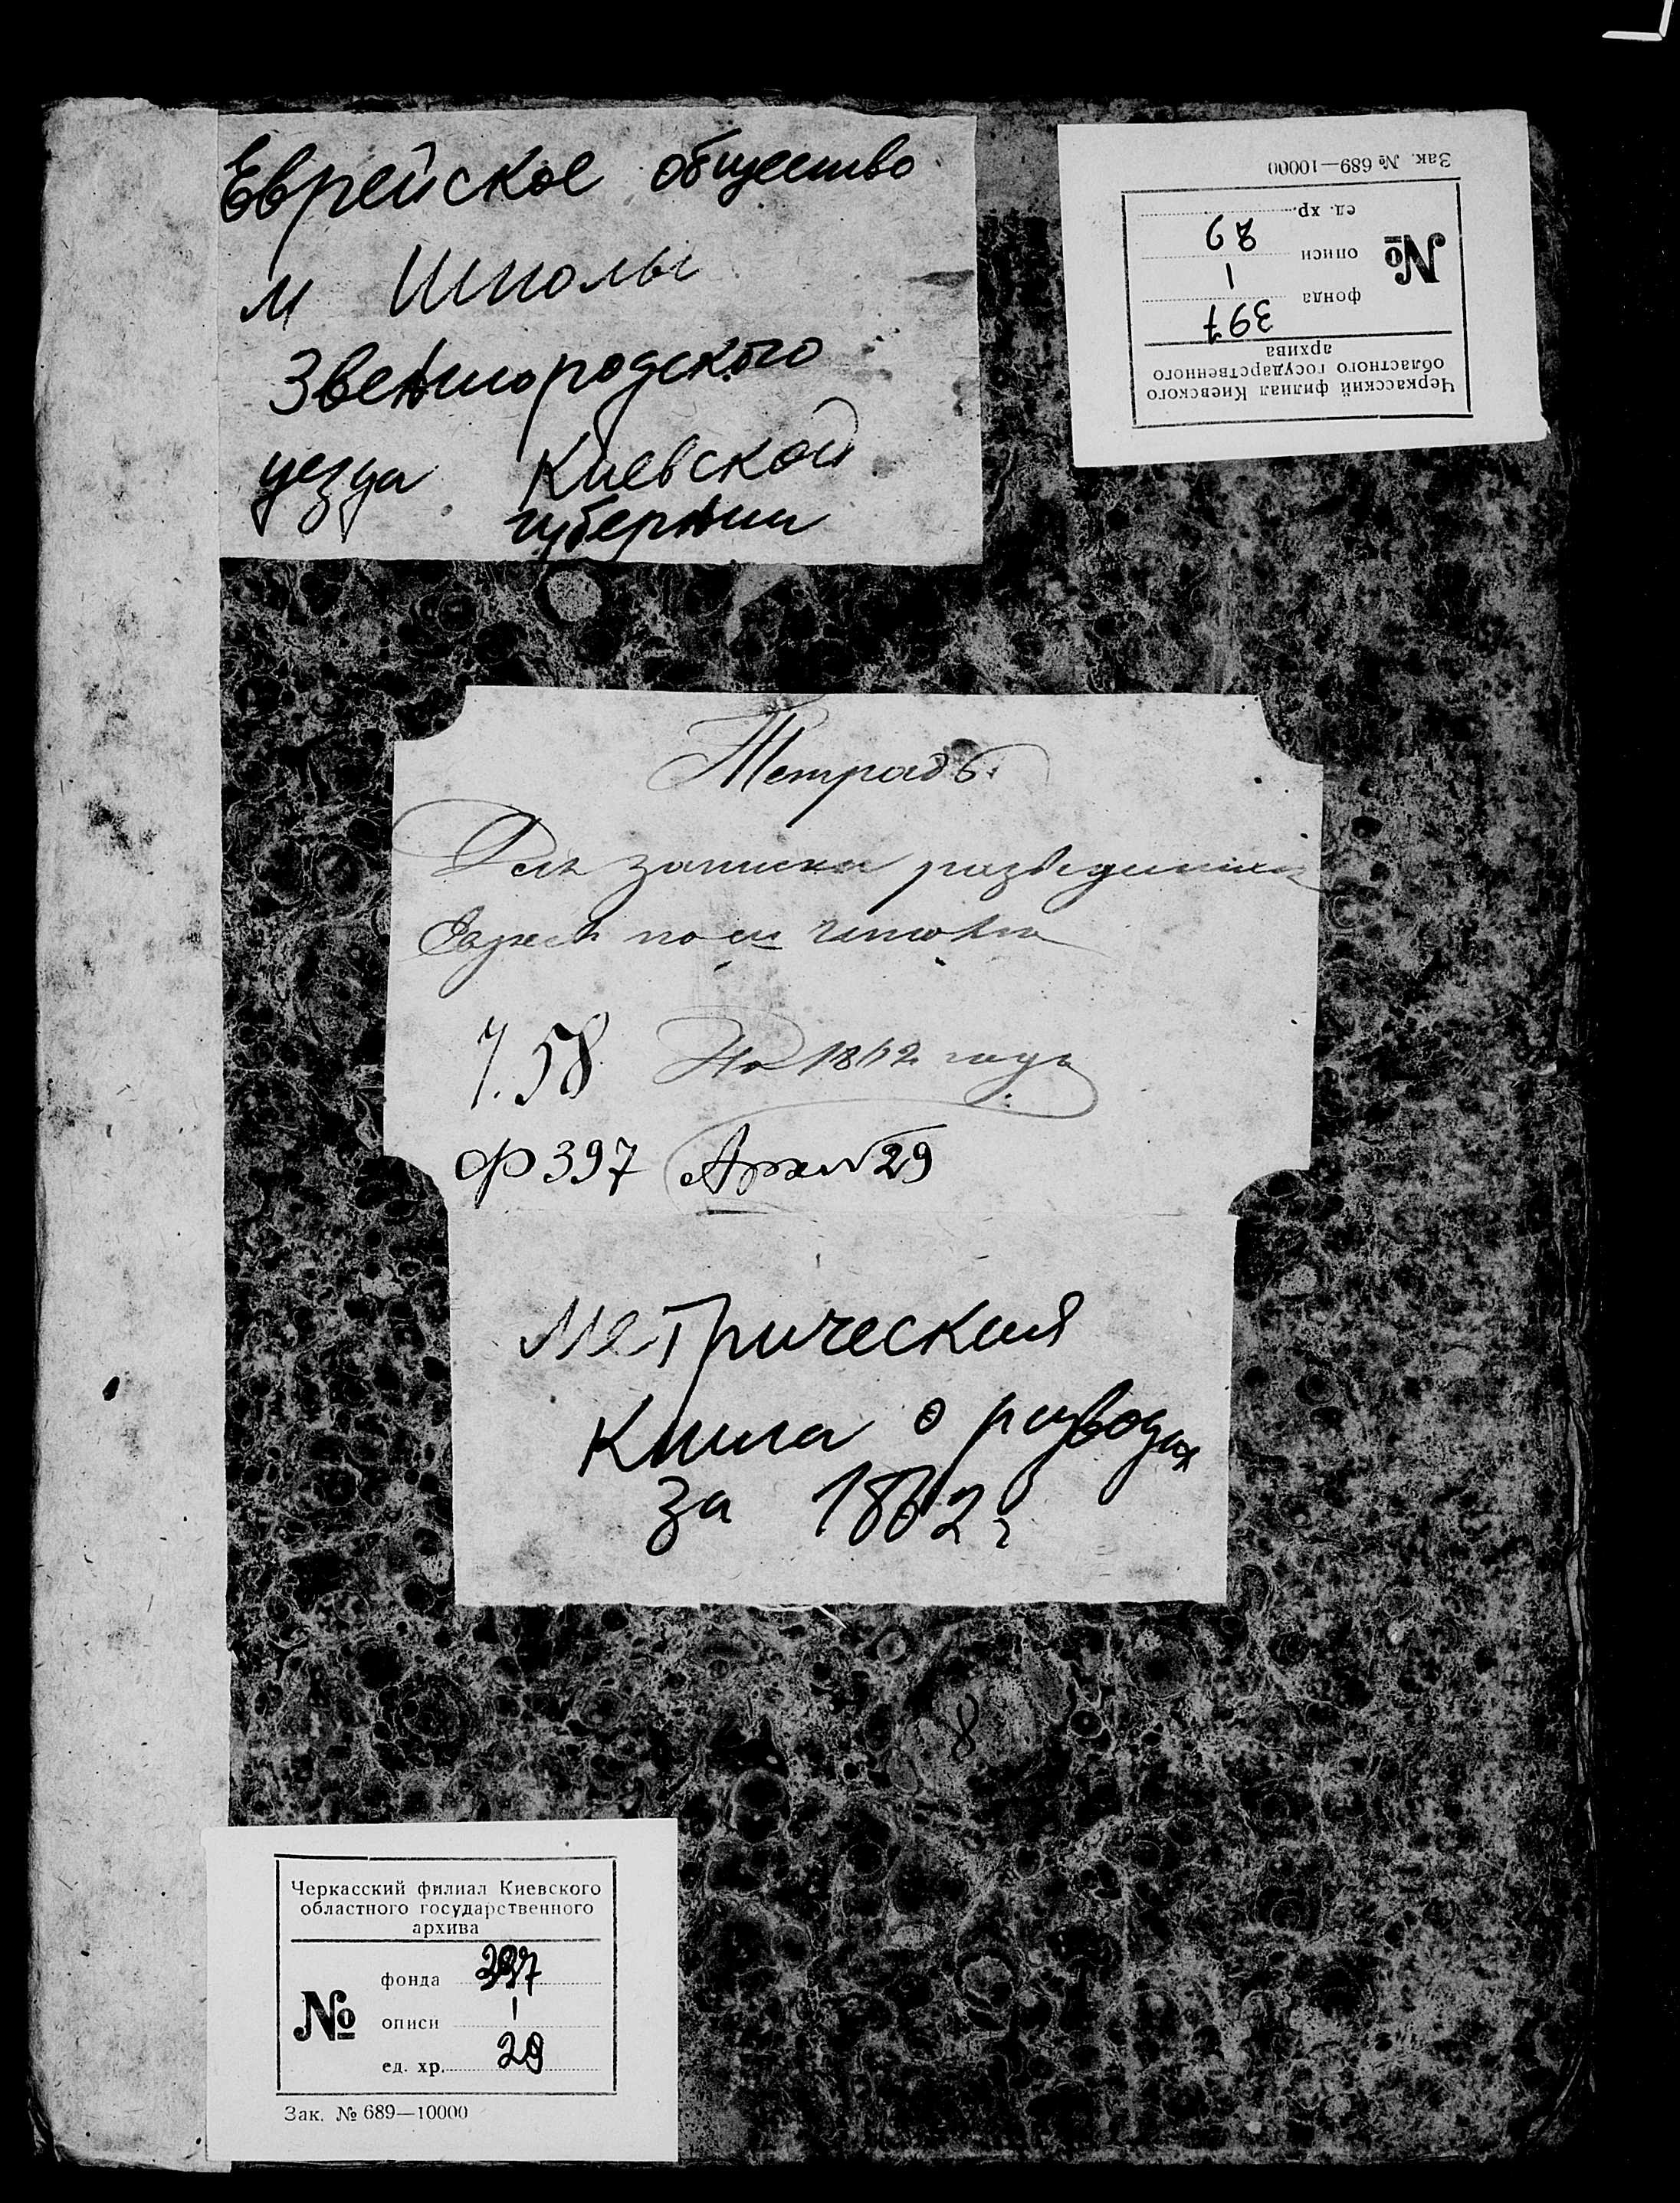 Еврейское общество
м Шполы
Звенигородского
уезда Киевской
губернии
Зак. № 689—10000
Черкасский филиал Киевского
областного государственного
архива
№
фонда 397
описи 1
ед. хр. 29
Тетрадь
Для записки разведенных
Евреевъ
7.58 На 1862 годъ
Ф 397 Арх № 29
Метрическая
Книга о разводах
за 1862 г
8
Черкасский филиал Киевского
областного государственного
архива
№
фонда 397
описи 1
ед. хр. 29
Зак. № 689—10000